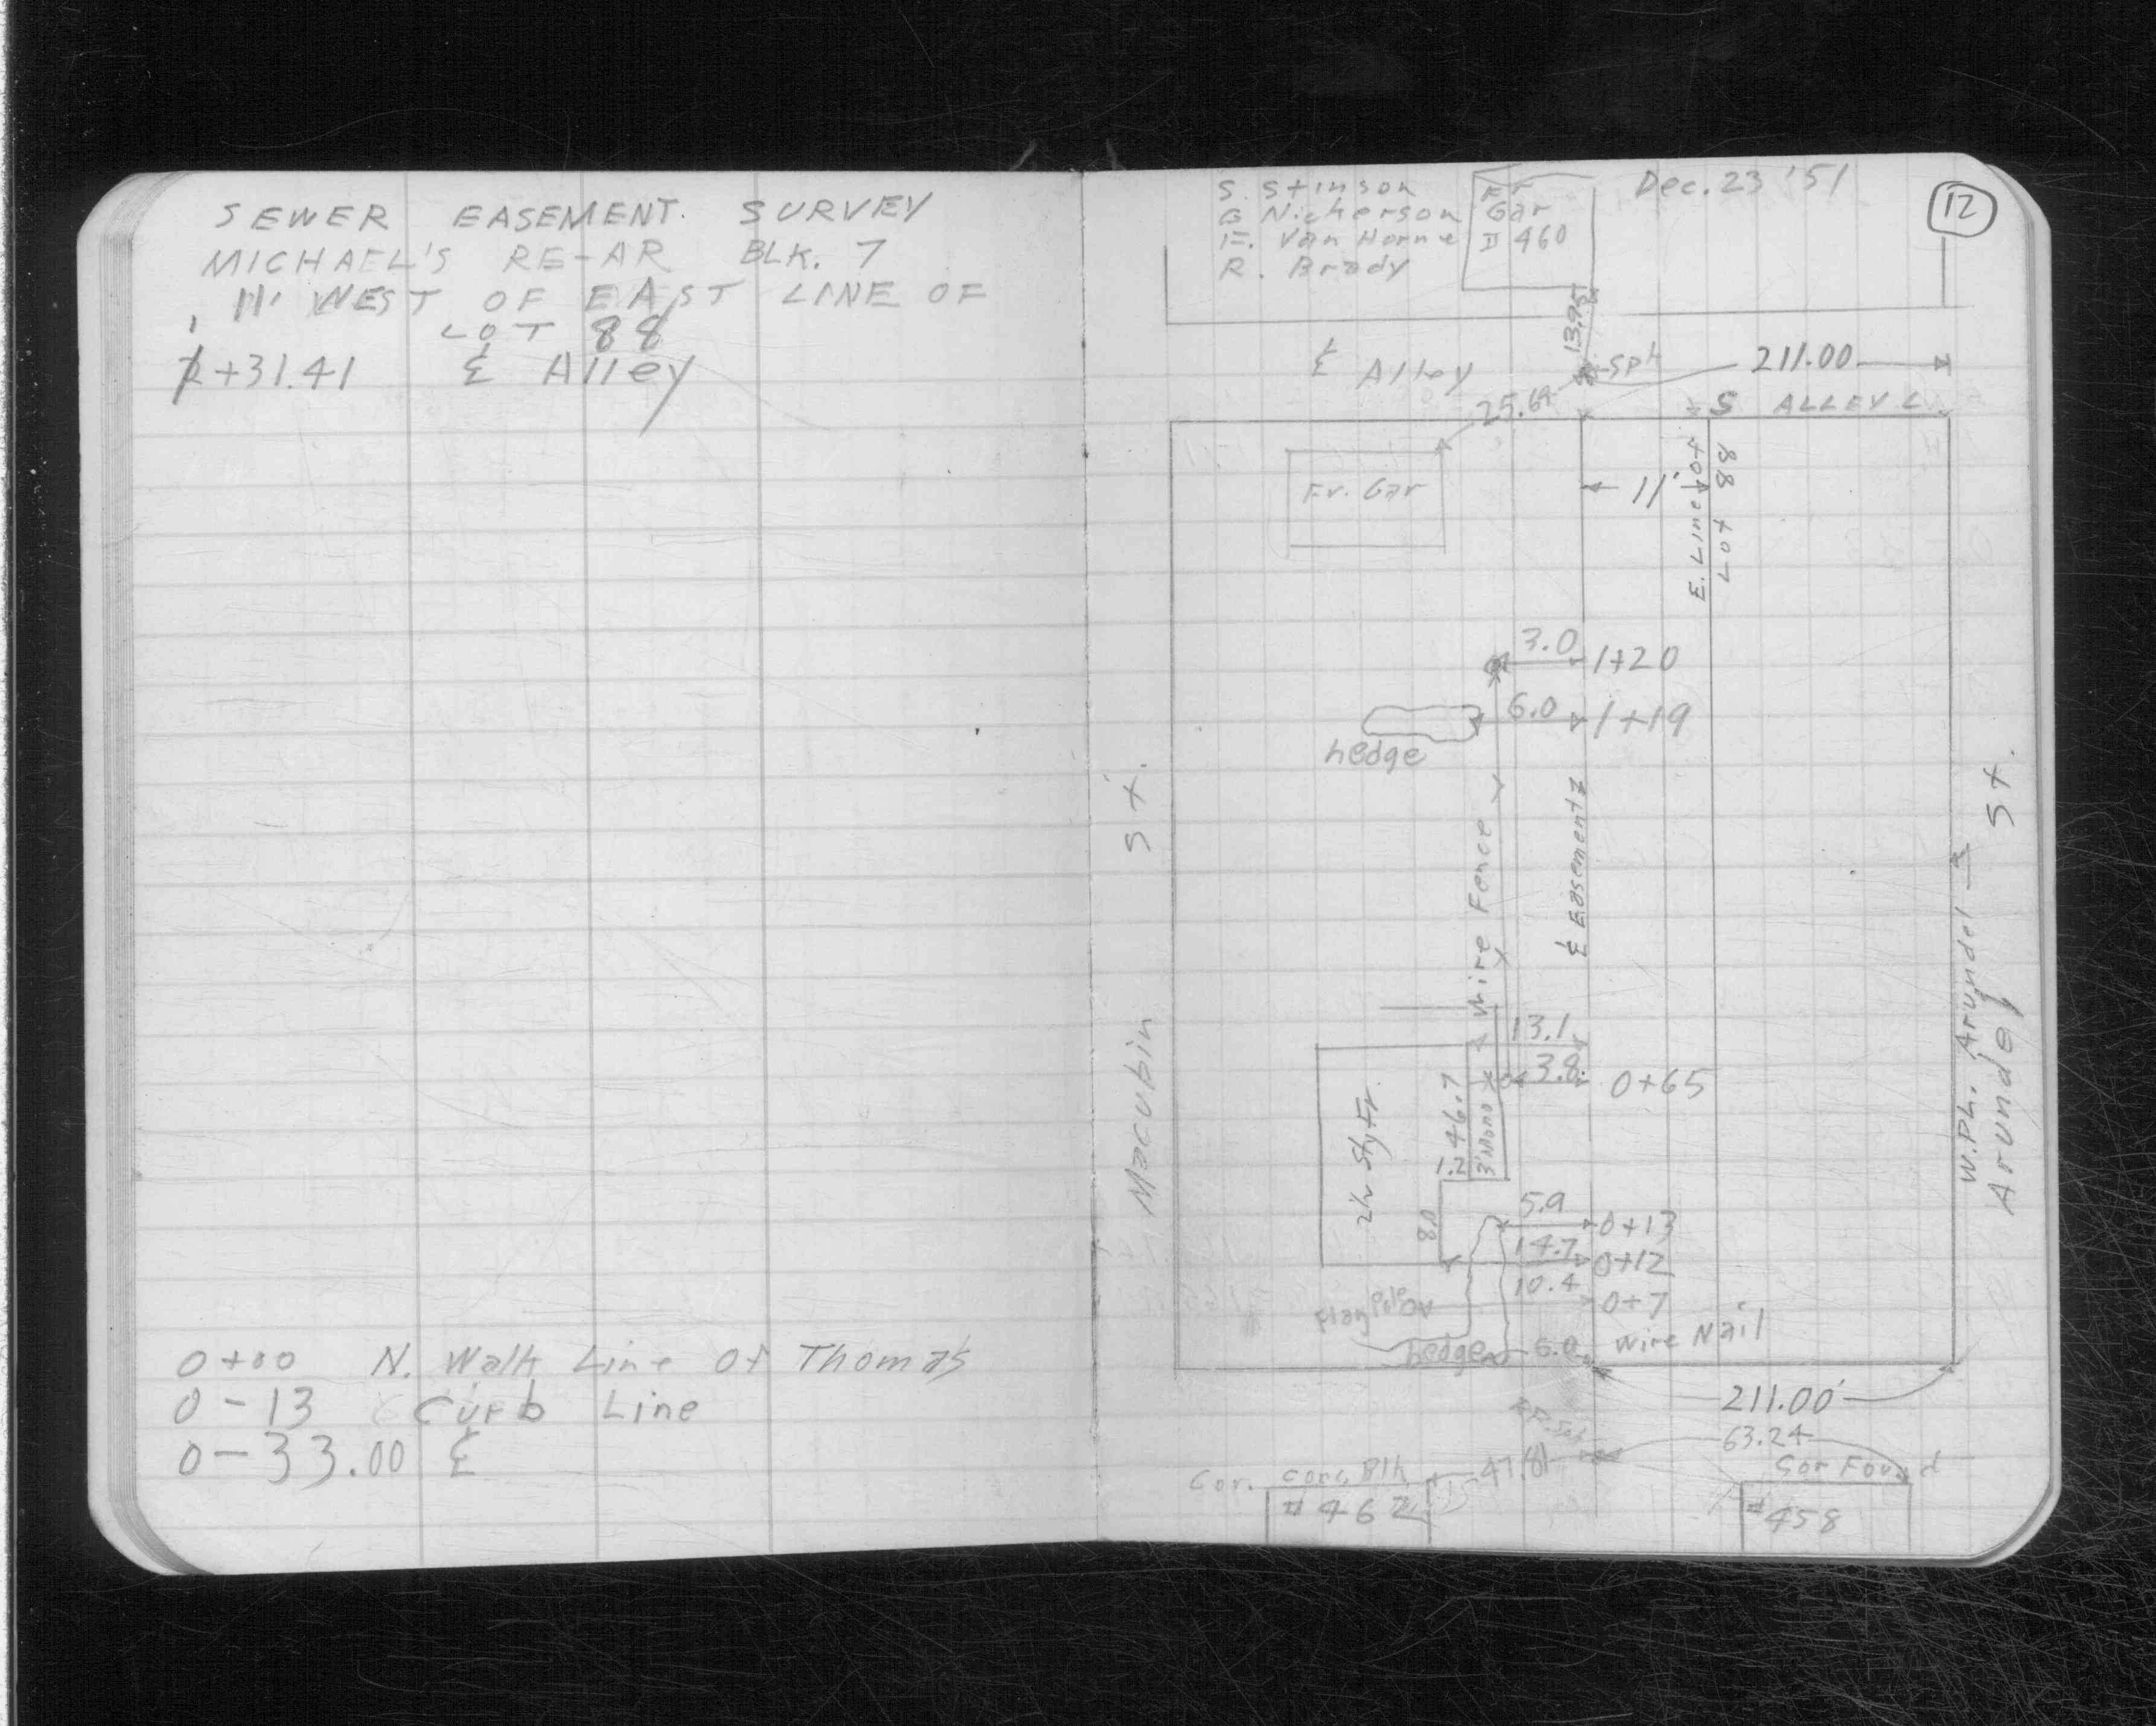 SEWER EASEMENT. SURVEY
MICHAEL'S RE-AR BLK. 7
11' WEST OF EAST LINE OF
LOT 88
+31.41 ℄ Alley
0+00 N. Walk Line of Thomas
0-13 Curb Line
0-33.00 ℄
S. Stinson
G Nicherson
F. Van Horne
R. Brady
Fr
Gar
# 460
Dec. 23 '51
12
13.95
℄ Alley
Spk
211.00
25.69
S ALLEY L.
Fr. Gar
11'
E. Line of
Lot 88
3.0 1+20
6.0 1+19
hedge
Wire Fence
℄ Easement
Maccubin St.
W. PL. Arundel
Arundel St.
13.1
3.8 0+65
2½ Sty Fr.
46.7
1.2
8.0
5.9 0+13
14.7 0+12
10.4 0+7
Flag Pole
hedge 6.0 Wire Nail
211.00'
63.24
47.81
Cor. conc. Blk
# 462
Cor Found
#458